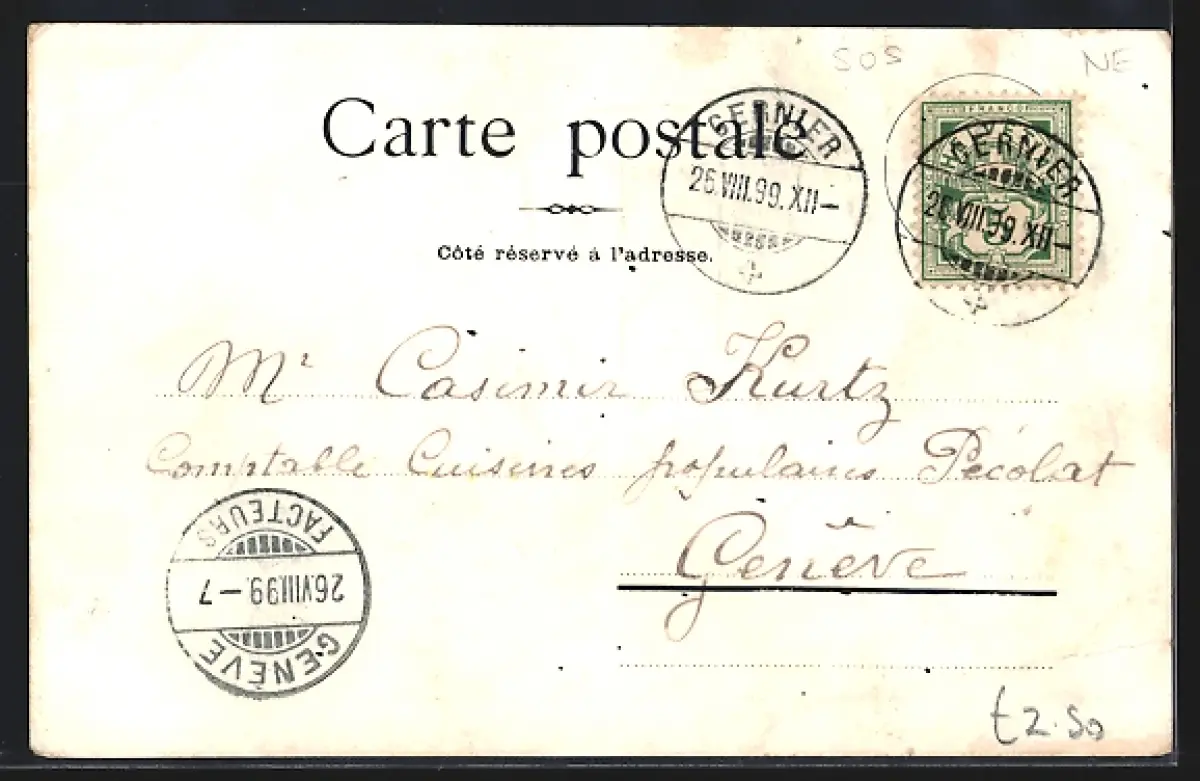 SOS NE
Carte postale
CERNIER
25.VIII.99.XII–
FRANCO
CERNIER
25.VIII.99.XII–
5
Côté réservé à l'adresse.
Mr Casimir Kurtz
Comptable Cuisines populaires Pécolat
Genève
FACTEURS
26.VIII.99.–7
GENÈVE
t2.50